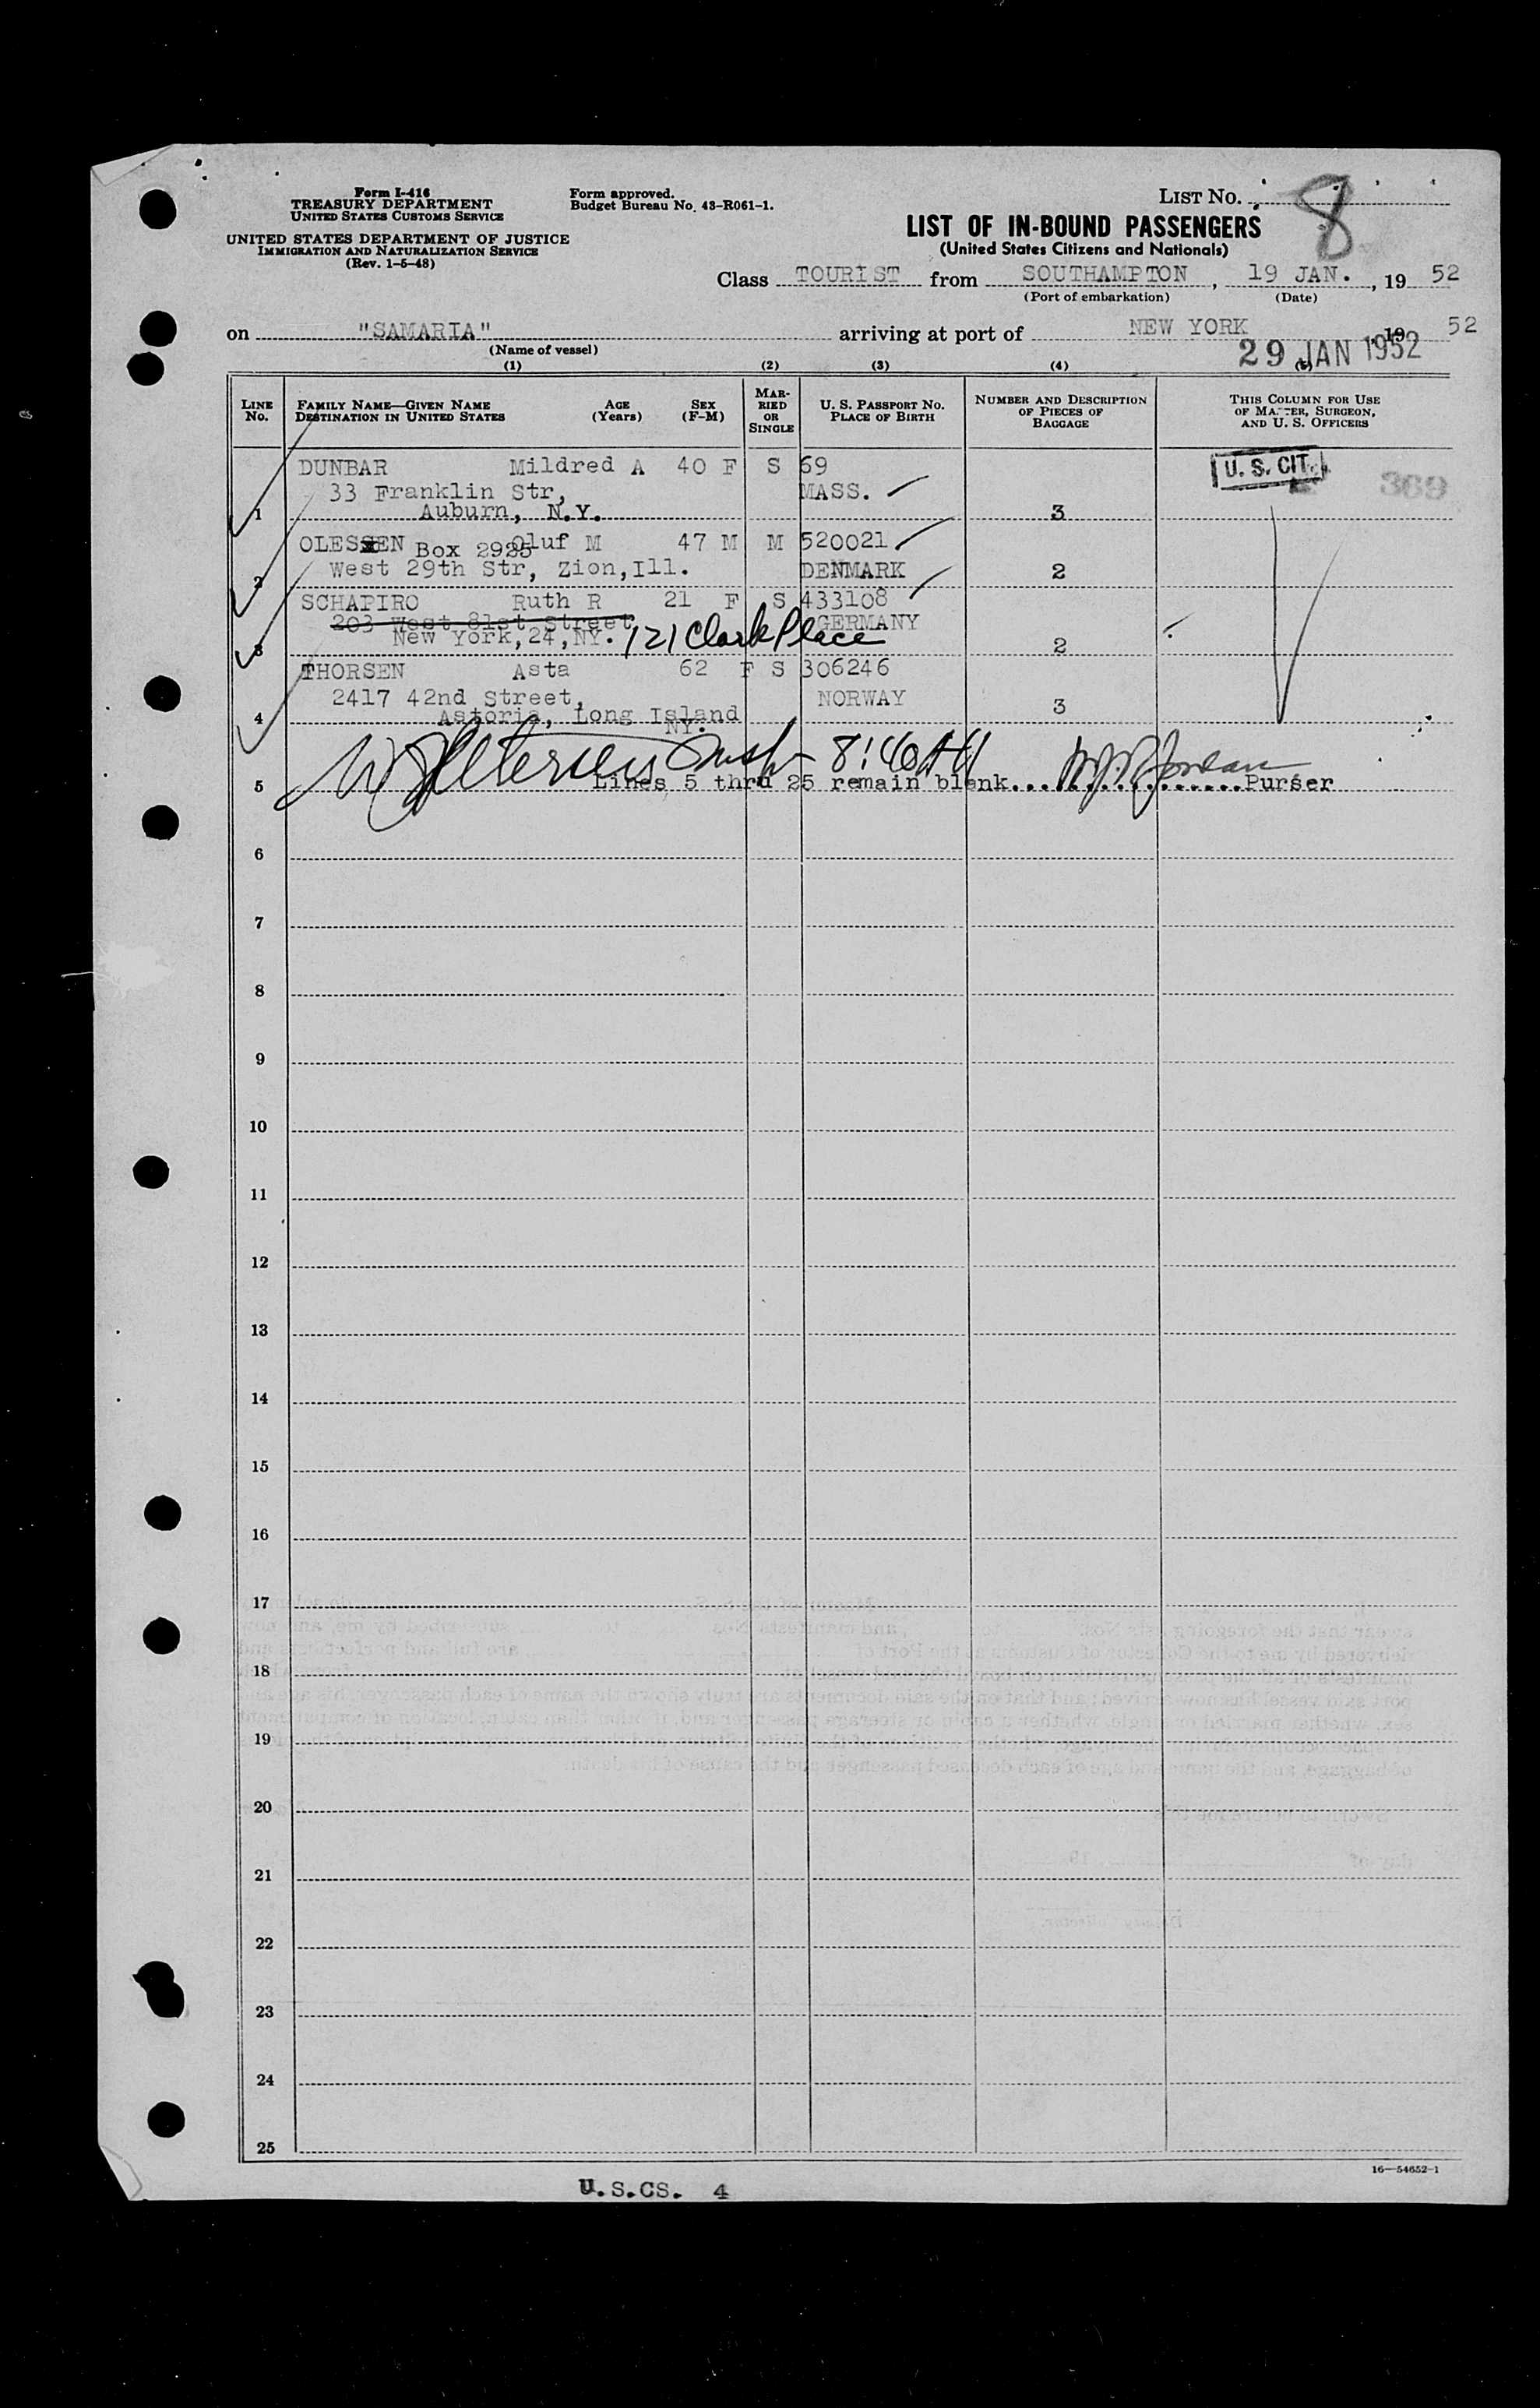 Form I-416
TREASURY DEPARTMENT
UNITED STATES CUSTOMS SERVICE
UNITED STATES DEPARTMENT OF JUSTICE
IMMIGRATION AND NATURALIZATION SERVICE
(Rev. 1-5-48)
Form approved.
Budget Bureau No. 43-R061-1.
LIST NO. 8
LIST OF IN-BOUND PASSENGERS
(United States Citizens and Nationals)
Class TOURIST from SOUTHAMPTON, 19 JAN., 19 52
(Port of embarkation) (Date)
on "SAMARIA" arriving at port of NEW YORK, 19 52
29 JAN 1952
(Name of vessel)
(1) (2) (3) (4)
LINE No. FAMILY NAME—GIVEN NAME DESTINATION IN UNITED STATES AGE (Years) SEX (F-M) MARRIED OR SINGLE U. S. PASSPORT NO. PLACE OF BIRTH NUMBER AND DESCRIPTION OF PIECES OF BAGGAGE THIS COLUMN FOR USE OF MASTER, SURGEON, AND U. S. OFFICERS
DUNBAR Mildred A 40 F S 69 U. S. CIT. 369
33 Franklin Str, MASS.
1 Auburn, N.Y. 3
OLESSEN Box 2925 Oluf M 47 M M 520021
2 West 29th Str, Zion,Ill. DENMARK 2
SCHAPIRO Ruth R 21 F S 433108
203 West 81st Street GERMANY
3 New York,24,NY. 121 Clark Place 2
THORSEN Asta 62 F S 306246
2417 42nd Street, NORWAY
4 Astoria, Long Island 3
NY.
8:40 AM
5 Lines 5 thru 25 remain blank.................Purser
6
7
8
9
10
11
12
13
14
15
16
17
18
19
20
21
22
23
24
25
16—54652-1
U.S.CS. 4